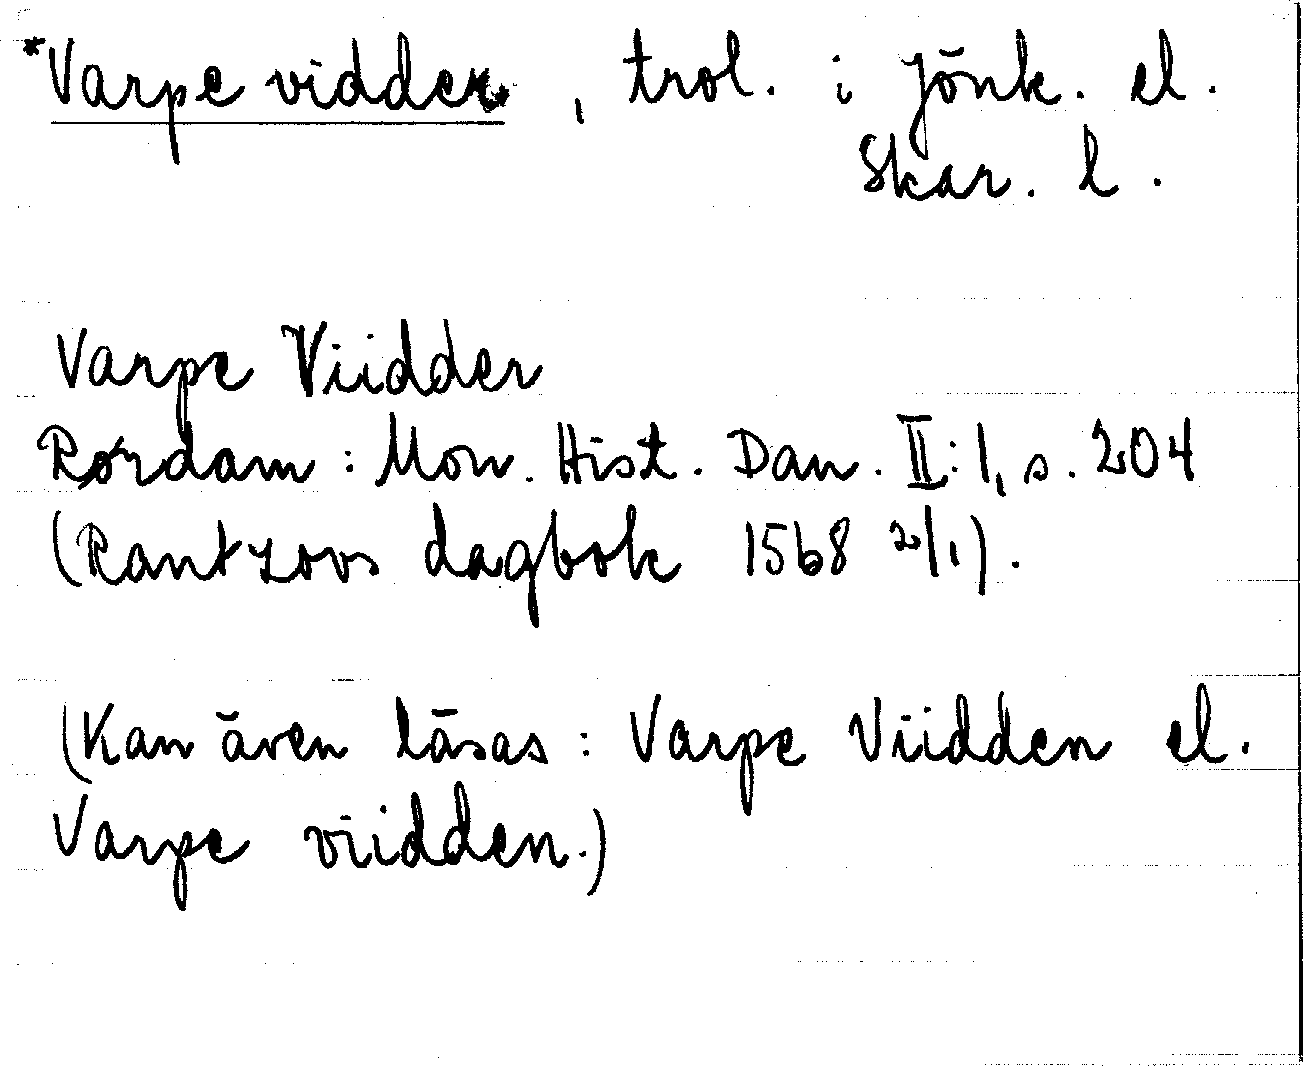 *Varpe vidder*, trol. i Jönk. el.
Skar. l.
Varpe Viidder
Rørdam: Mon. Hist. Dan. II:1, s. 204
(Rantzovs dagbok 1568 2/1).
(Kan även läsas: Varpe Viidden el.
Varpe viidden.)